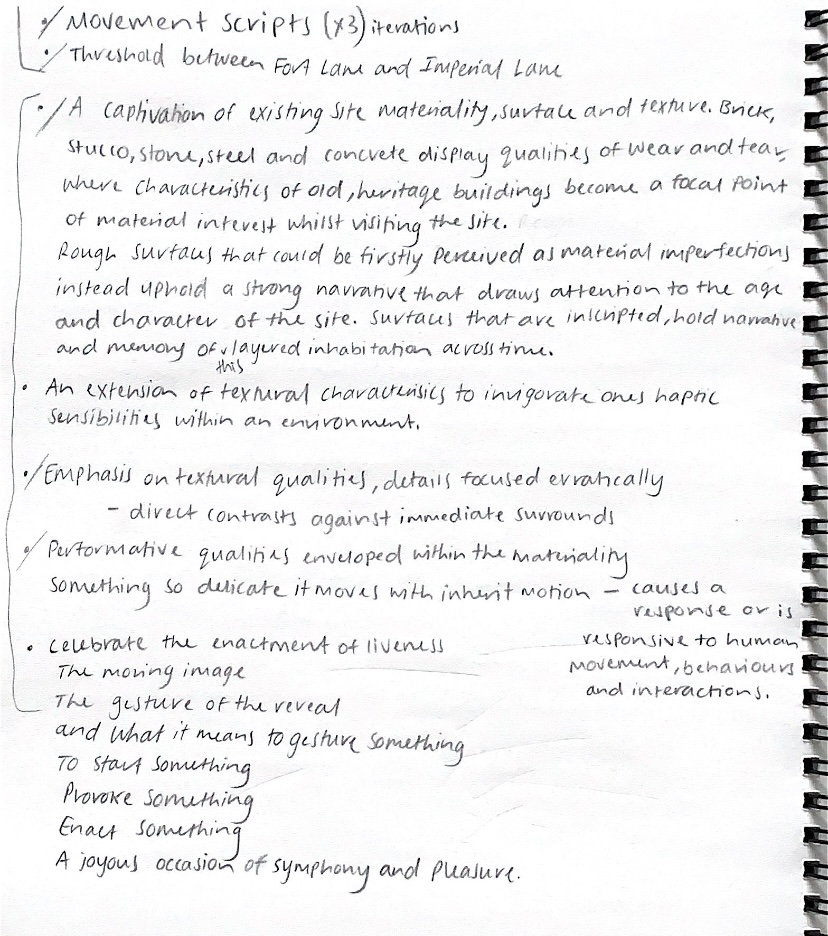 • Movement scripts (x3) iterations
• Threshold between Fort Lane and Imperial Lane
• A captivation of existing site materiality, surface and texture. Brick,
stucco, stone, steel and concrete display qualities of wear and tear,
where characteristics of old, heritage buildings become a focal point
of material interest whilst visiting the site.
Rough surfaces that could be firstly perceived as material imperfections
instead uphold a strong narrative that draws attention to the age
and character of the site. Surfaces that are inscripted, hold narrative
and memory of this layered inhabitation across time.
• An extension of textural characterisics to invigorate ones haptic
sensibilities within an environment.
• Emphasis on textural qualities, details focused erratically
- direct contrasts against immediate surrounds
• Performative qualities enveloped within the materiality
something so delicate it moves with inherit motion – causes a
response or is
responsive to human
movement, behaviours
and interactions.
• Celebrate the enactment of liveness
The moving image
The gesture of the reveal
and what it means to gesture something
To start something
Provoke something
Enact something
A joyous occasion of symphony and pleasure.